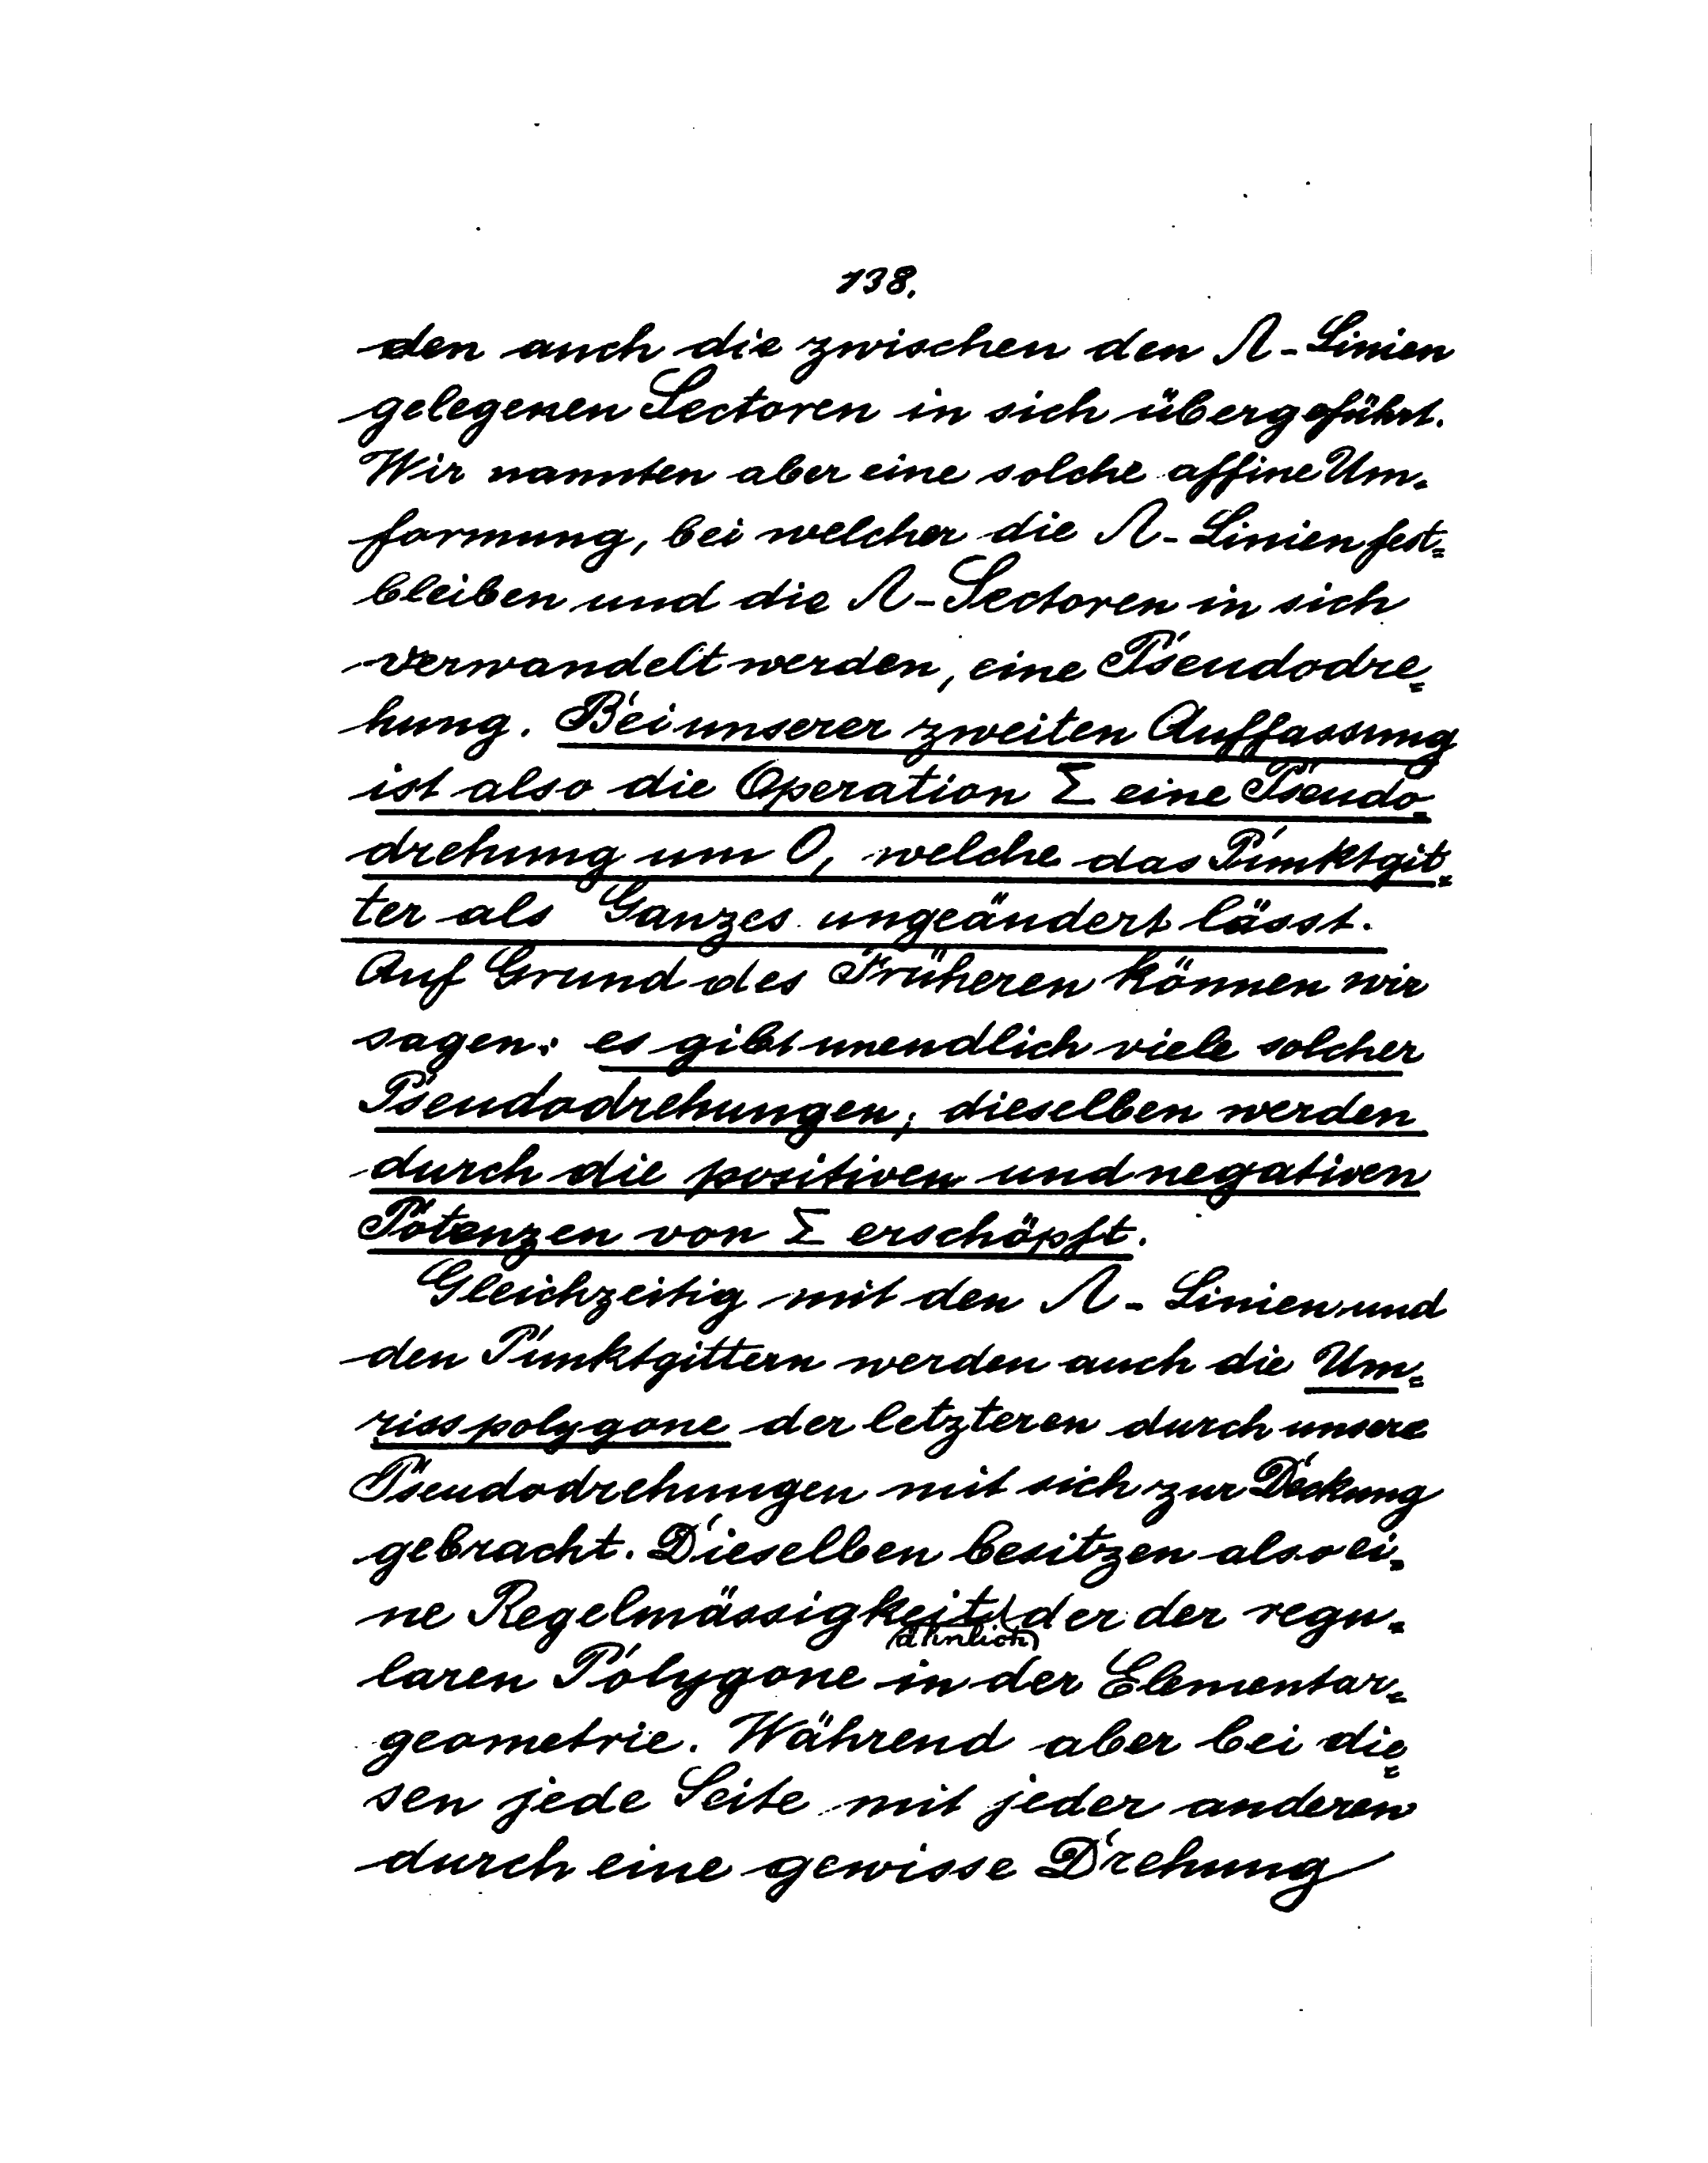 138.
den auch die zwischen den Λ-Linien
gelegenen Sectoren in sich übergeführt.
Wir nannten aber eine solche affine Um-
formung, bei welcher die Λ-Linien fest-
bleiben und die Λ-Sectoren in sich
verwandelt werden, eine Pseudodre-
hung. Bei unserer zweiten Auffassung
ist also die Operation Σ eine Pseudo-
drehung um O, welche das Punktgit-
ter als Ganzes ungeändert lässt.
Auf Grund des Früheren können wir
sagen: es gibt unendlich viele solcher
Pseudodrehungen; dieselben werden
durch die positiven und negativen
Potenzen von Σ erschöpft.
Gleichzeitig mit den Λ-Linien und
den Punktgittern werden auch die Um-
risspolygone der letzteren durch unsere
Pseudodrehungen mit sich zur Deckung
gebracht. Dieselben besitzen also ei-
ne Regelmässigkeit der der regu-
(ähnlich)
laren Polygone in der Elementar-
geometrie. Während aber bei die-
sen jede Seite mit jeder anderen
durch eine gewisse Drehung